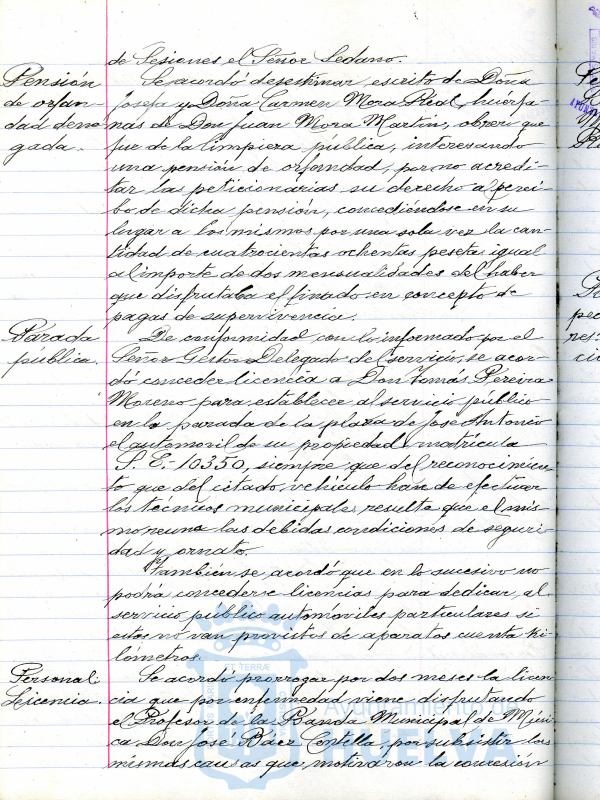 de Sesiones el Señor Sedano.
Pensión
de orfan-
dad dene-
gada.
Se acordó desestimar, escrito de Doña
Josefa y Doña Carmen Mora Real, huérfa-
nas de Don Juan Mora Martin, obrero que
fue de la limpiera pública, interesando
una pensión de orfandad, por no acredi-
tar las peticionarias su derecho al perci-
bo de dicha pensión, concediéndose en su
lugar a los mismos por una sola vez la can-
tidad de cuatrocientas ochentas pesetas igual
al importe de dos mensualidades del haber
que disfrutaba el finado en concepto de
pagas de supervivencia.
Parada
pública.
De conformidad con lo informado por el
Señor Gestor Delegado de servicio, se acor-
dó conceder licencia a Don Tomás Pereira
Moreno para establecer al servicio público
en la parada de la plaza de José Antonio
el automovil de su propiedad matrícula
S.E.-10350, siempre que del reconocimien-
to que del citado vehículo han de efectuar
los técnicos municipales resulte que el mis-
mo reuna las debidas condiciones de seguri-
dad y ornato.
También se acordó que en lo sucesivo no
podrá concederse licencias para dedicar al
servicio público automóviles particulares si
estos no van provistos de aparatos cuenta ki-
lómetros.
Personal.
Licencia.
Se acordó prorrogar por dos meses la licen-
cia que por enfermedad viene disfrutando
el Profesor de la Banda Municipal de Músi-
ca Don José Báez Contella, por subsistir las
mismas causas que motivaron la concesión
Ayuntamiento de
HUELVA